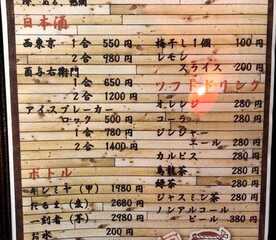 日本酒
西東京 1合 550円
2合 980円
酉与右衛門
1合 650円
2合 1200円
アイスブレーカー
ロック 500円
1合 780円
2合 1400円
ボトル
キンミヤ(甲) 1980円
だるま(麦) 2680円
一刻者(芋) 2980円
お水 200円
梅干し1個 100円
レモン
スライス 200円
ソフトドリンク
オレンジ 280円
コーラ 280円
ジンジャー
エール 280円
カルピス 280円
烏龍茶 280円
緑茶 280円
ジャスミン茶 280円
ノンアルコール
ビール 380円